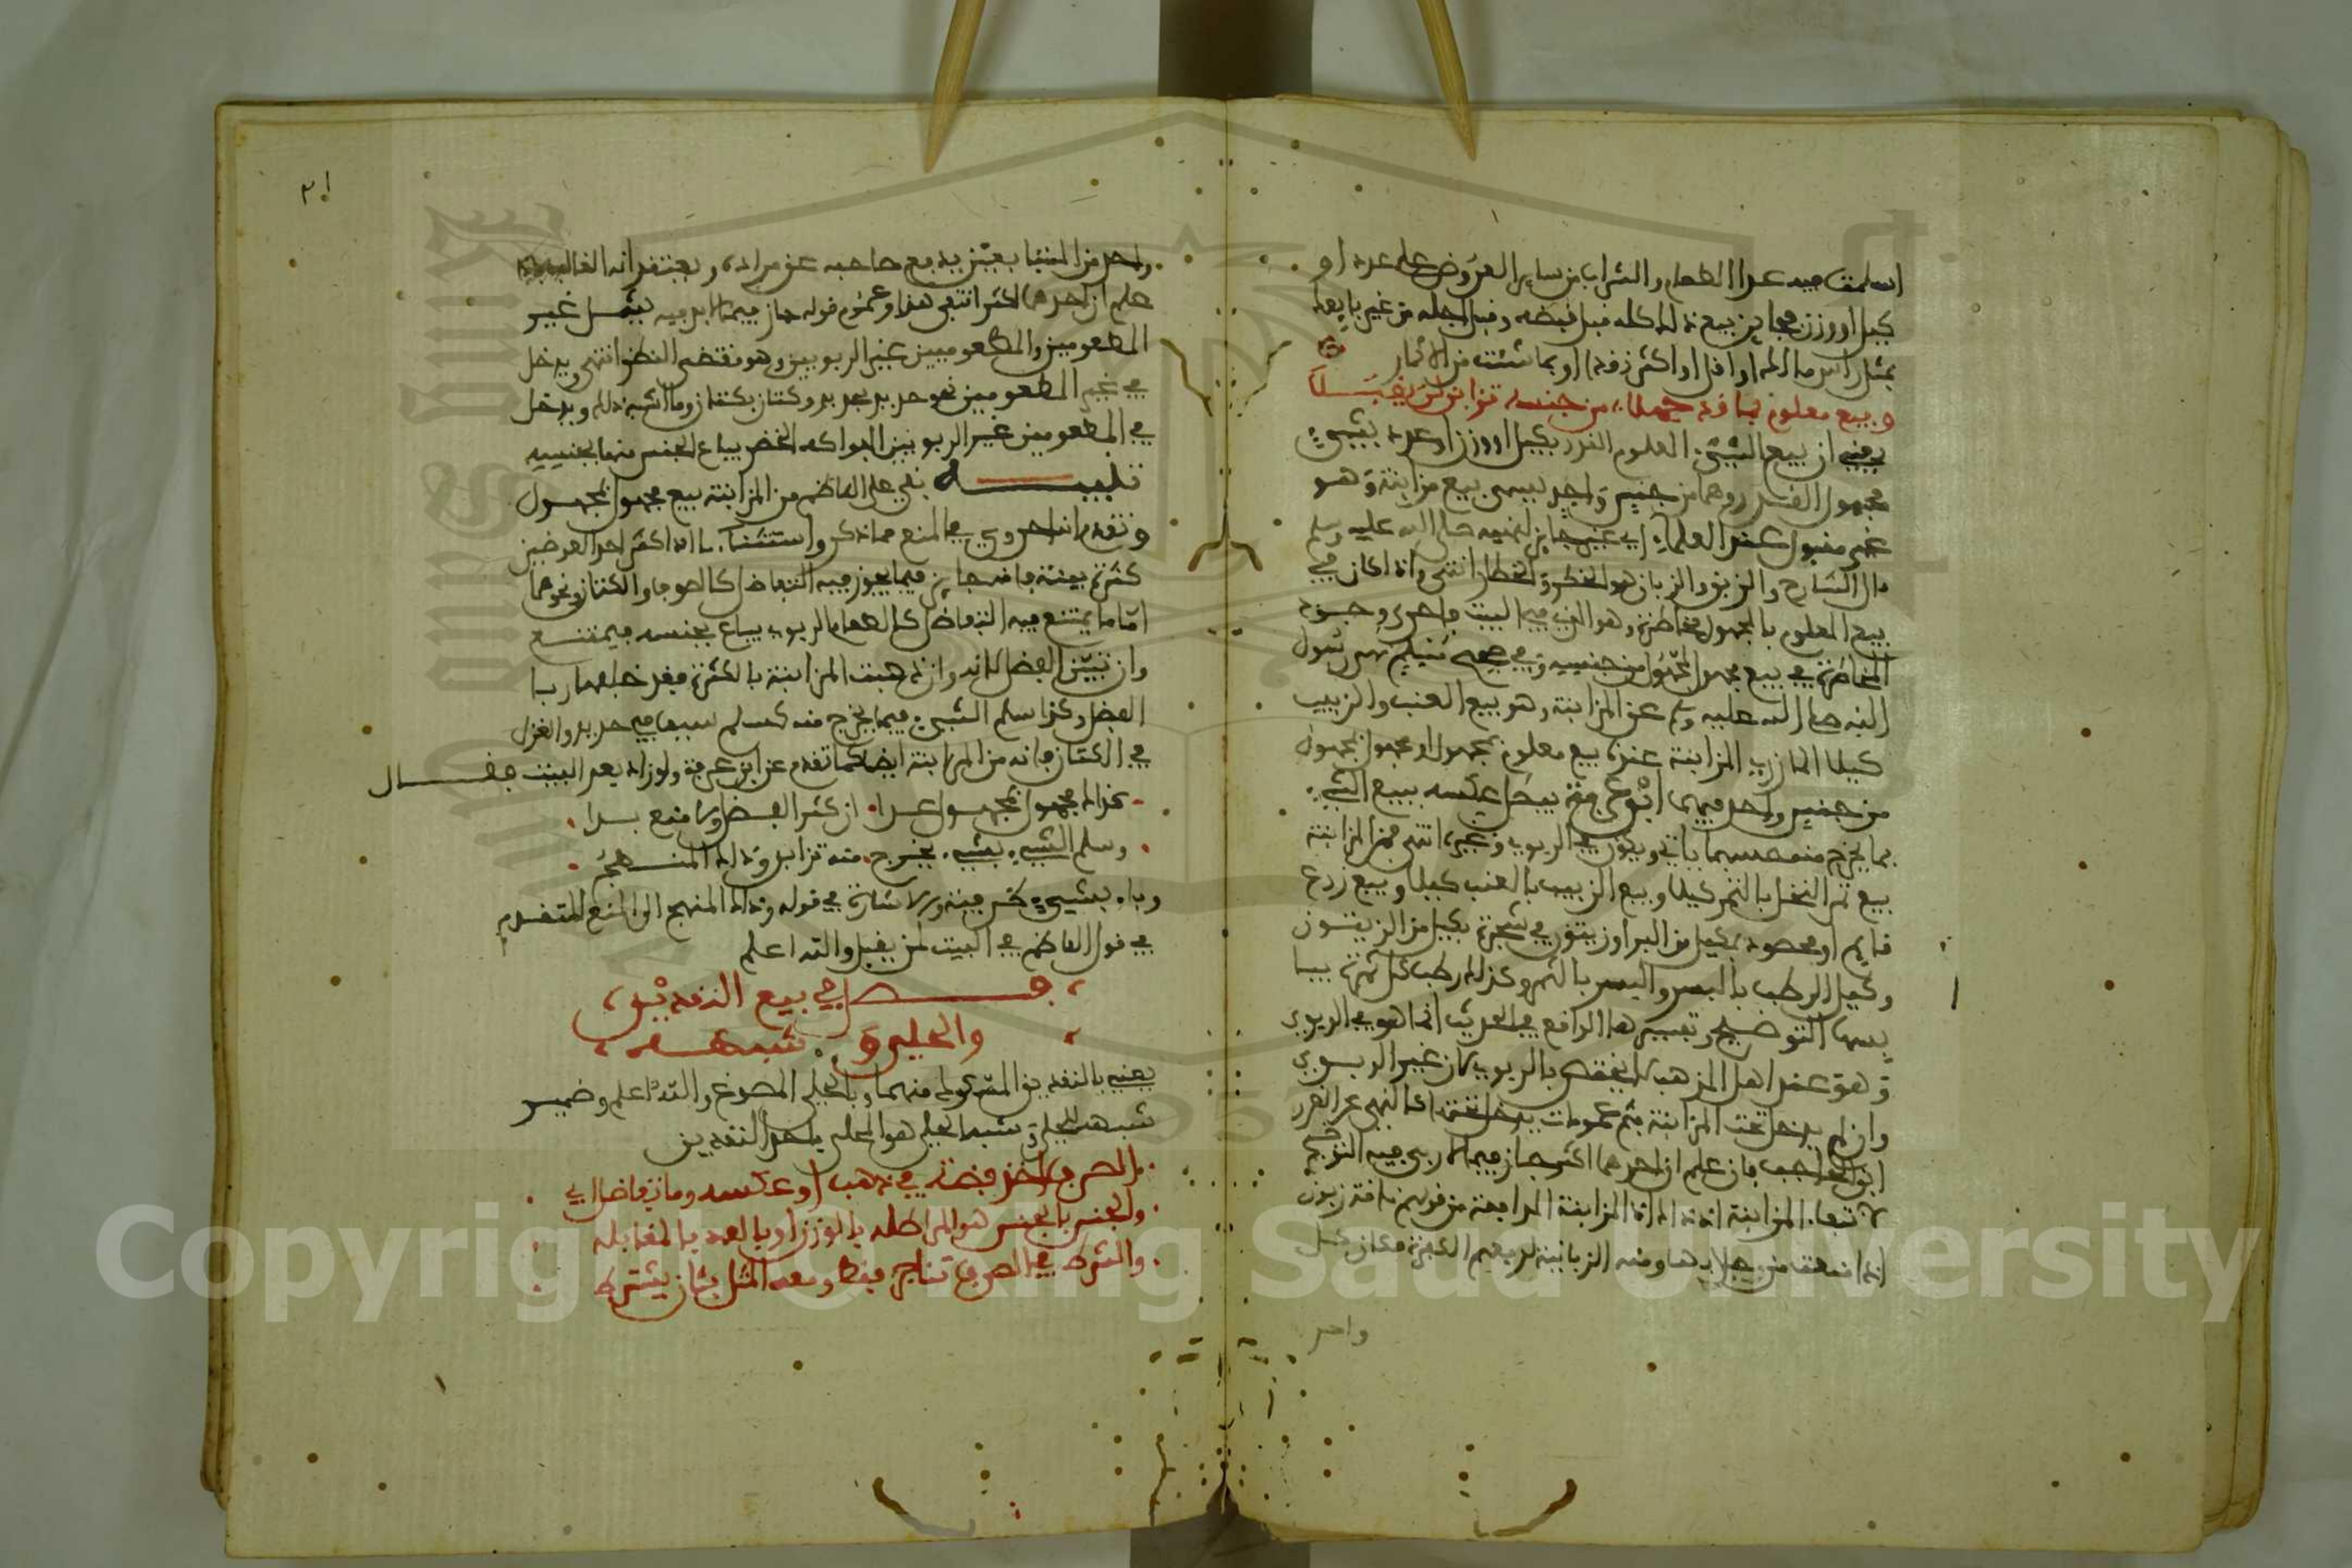 اسلمت فيه عدا الطعام والشراب من ساير العروض على عدد او
كيل او وزن فجايز بيع ذلك كله قبل قبضه وقبل اجله من غير بايعه
بمثل راس مالك او اقل او اكثر نقدا او بما شئت من الاثمان
وبيع معلوم بما قد جهلا من جنسه تزابن لن يقبلا
يعني ان بيع الشيء المعلوم القدر بكيل او وزن او عدد بشيء
مجهول القدر وهما من جنس واحد يسمى بيع مزابنة وهو
غير مقبول عند العلماء اي غير جايز لنهيه صلى الله عليه وسلم
قال الشارح والزبن والزبان هو الخطر والخطار انتهى واذا كان في
بيع المعلوم بالمجهول مخاطرة وهو الذي في البيت فاحرى وجود
المخاطرة في بيع مجهول بمجهول من جنسه وفي صحيح مسلم نهى رسول
الله صلى الله عليه وسلم عن المزابنة وهو بيع العنب والزبيب
كيلا المازري المزابنة عندنا بيع معلوم بمجهول او مجهول بمجهول
من جنس واحد فيهما ابن عرفة يبطل عكسه ببيع الشيء
بما يخرج منه حسبما ياتي ويكون في الربوي وغيره انتهى فمن المزابنة
بيع ثمر النخل بالتمر كيلا وبيع الزبيب بالعنب كيلا وبيع زرع
قايم او محصود بكيل من البر او زيتون في شجرة بكيل من الزيتون
وكبيع الرطب بالبسر والبسر بالتمر وكذلك رطب كل ثمرة بيا
بسها التوضيح وتفسيرها الواقع في الحديث انما هو في الربوي
وهو عند اهل المذهب لا يختص بالربوي لان غير الربوي
وان لم يدخل تحت المزابنة فثم عمومات يدخل تحتها كالنهي عن الغرر
ابن الحاجب فان علم ان احدهما اكثر جاز فيما لا ربى فيه التوضيح
لانتفاء المزابنة اذ ذاك اذ المزابنة المدافعة من قولهم ناقة زبون
اذا منعت من حلابها ومنه الزبانية لدفعهم الكفرة فكان كل
واحد
٣١
واحد من المتبايعين يدفع صاحبه عن مراده ويعتقد انه الغالب فاذا
علم ان احدهما اكثر انتفى هذا وعموم قوله جاز فيما لا ربى فيه يشمل غير
المطعومين والمطعومين غير الربويين وهو مقتضى النظر انتهى ويدخل
في غير المطعومين نحو حديد بحديد وكتان بكتان وما اشبه ذلك ويدخل
في المطعومين غير الربويين الفواكه الخضر يباع الجنس منها بجنسه
تنبيه بقي على الناظم من المزابنة بيع مجهول بمجهول
وتقدم انه احروي في المنع مما ذكر واستثناء ما اذا كثر احد العوضين
كثرة بينة فانه جايز فيما يجوز فيه التفاضل كالصوف او الكتان ونحوهما
اما ما يمتنع فيه التفاضل كالطعام الربوي يباع بجنسه فيمتنع
وان تبين الفضل لانه وان ذهبت المزابنة بالكثرة فقد خلفها ربا
الفضل وكذا سلم الشيء فيما يخرج منه كسلم سيف في حديد والغزل
في الكتان فانه من المزابنة ايضا كما تقدم عن ابن عرفة ولو زاد بعد البيت فقال
كذاك مجهول بمجهول عدا ان كثر الفضل ولا منع بدا
وسلم الشيء بشيء يخرج منه تزابن وذاك المنهج
وباء بشيء كفي فيه والاشارة في قوله وذاك المنهج الى المنع المتقدم
في قول الناظم في البيت لن يقبل والله اعلم
فصل في بيع النقدين
والحلي وشبهه
يعني بالنقدين المسكوك منهما وبالحلي المصوغ والله اعلم وضمير
شبهه للحلي وشبه الحلي هو المحلى باحد النقدين
الصرف اخذ فضة في ذهب او عكسه وما تفاضل ابي
والجنس بالجنس هو المراطله بالوزن او بالعد بالمبادله
والشرط في الصرف تناجز فقط ومعه المثل بثان يشترط